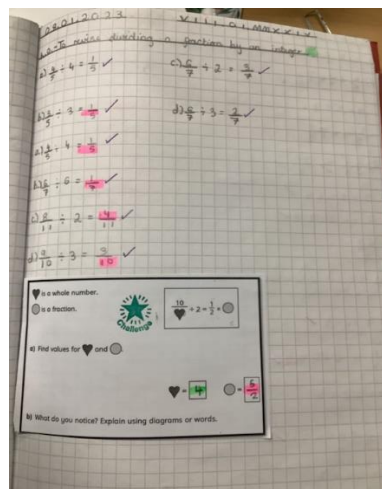 09.01.2023 VIII.01.MMXXIX
dividing a fraction by an integer
a) 4/5 ÷ 4 = 1/5 ✓ c) 6/7 ÷ 2 = 3/7 ✓
b) 3/5 ÷ 3 = 1/5 ✓ d) 6/7 ÷ 3 = 2/7 ✓
a) 4/5 ÷ 4 = 1/5 ✓
b) 6/7 ÷ 6 = 1/7 ✓
c) 8/11 ÷ 2 = 4/11 ✓
d) 9/10 ÷ 3 = 3/10 ✓
♥ is a whole number.
○ is a fraction.
Challenge
10/♥ ÷ 2 = 1/2 × ○
a) Find values for ♥ and ○.
♥ = 4 ○ = 5/2
b) What do you notice? Explain using diagrams or words.